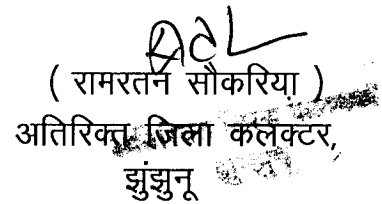 ( रामरतन सौकरिया )
अतिरिक्त जिला कलक्टर,
झुंझुनू